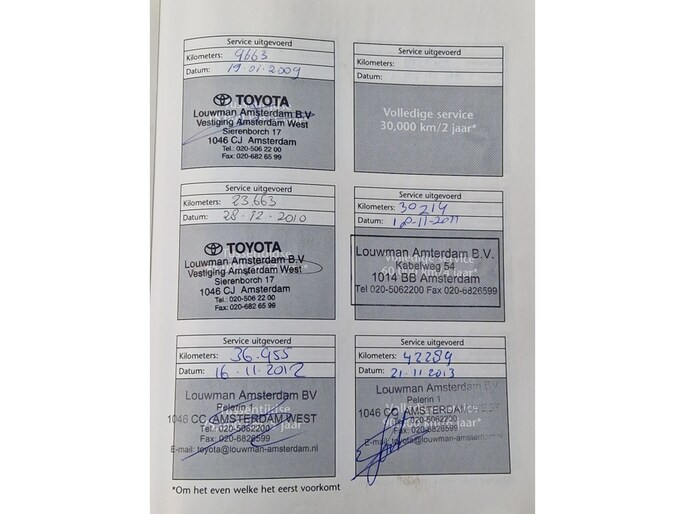 Service uitgevoerd
Kilometers: 9663
Datum: 19-01-2009
TOYOTA
Louwman Amsterdam B.V.
Vestiging Amsterdam West
Sierenborch 17
1046 CJ Amsterdam
Tel.: 020-506 22 00
Fax: 020-682 65 99
Service uitgevoerd
Kilometers:
Datum:
Volledige service
30,000 km/2 jaar*
Service uitgevoerd
Kilometers: 23.663
Datum: 28-12-2010
TOYOTA
Louwman Amsterdam B.V.
Vestiging Amsterdam West
Sierenborch 17
1046 CJ Amsterdam
Tel.: 020-506 22 00
Fax: 020-682 65 99
Service uitgevoerd
Kilometers: 30214
Datum: 18-11-2011
Louwman Amterdam B.V.
Volledige service
Kabelweg 54
1014 BB Amsterdam
Tel 020-5062200 Fax 020-6826599
Service uitgevoerd
Kilometers: 36.955
Datum: 16-11-2012
Louwman Amsterdam BV
Pelerin 1
1046 CC AMSTERDAM WEST
jaar
Tel: 020-5062200
Fax: 020-6826599
E-mail: toyota@louwman-amsterdam.nl
Service uitgevoerd
Kilometers: 42289
Datum: 21-11-2013
Louwman Amsterdam BV
Pelerin 1
1046 CC AMSTERDAM WEST
Tel: 020-5062200
Fax: 020-6826599
E-mail: toyota@louwman-amsterdam
*Om het even welke het eerst voorkomt